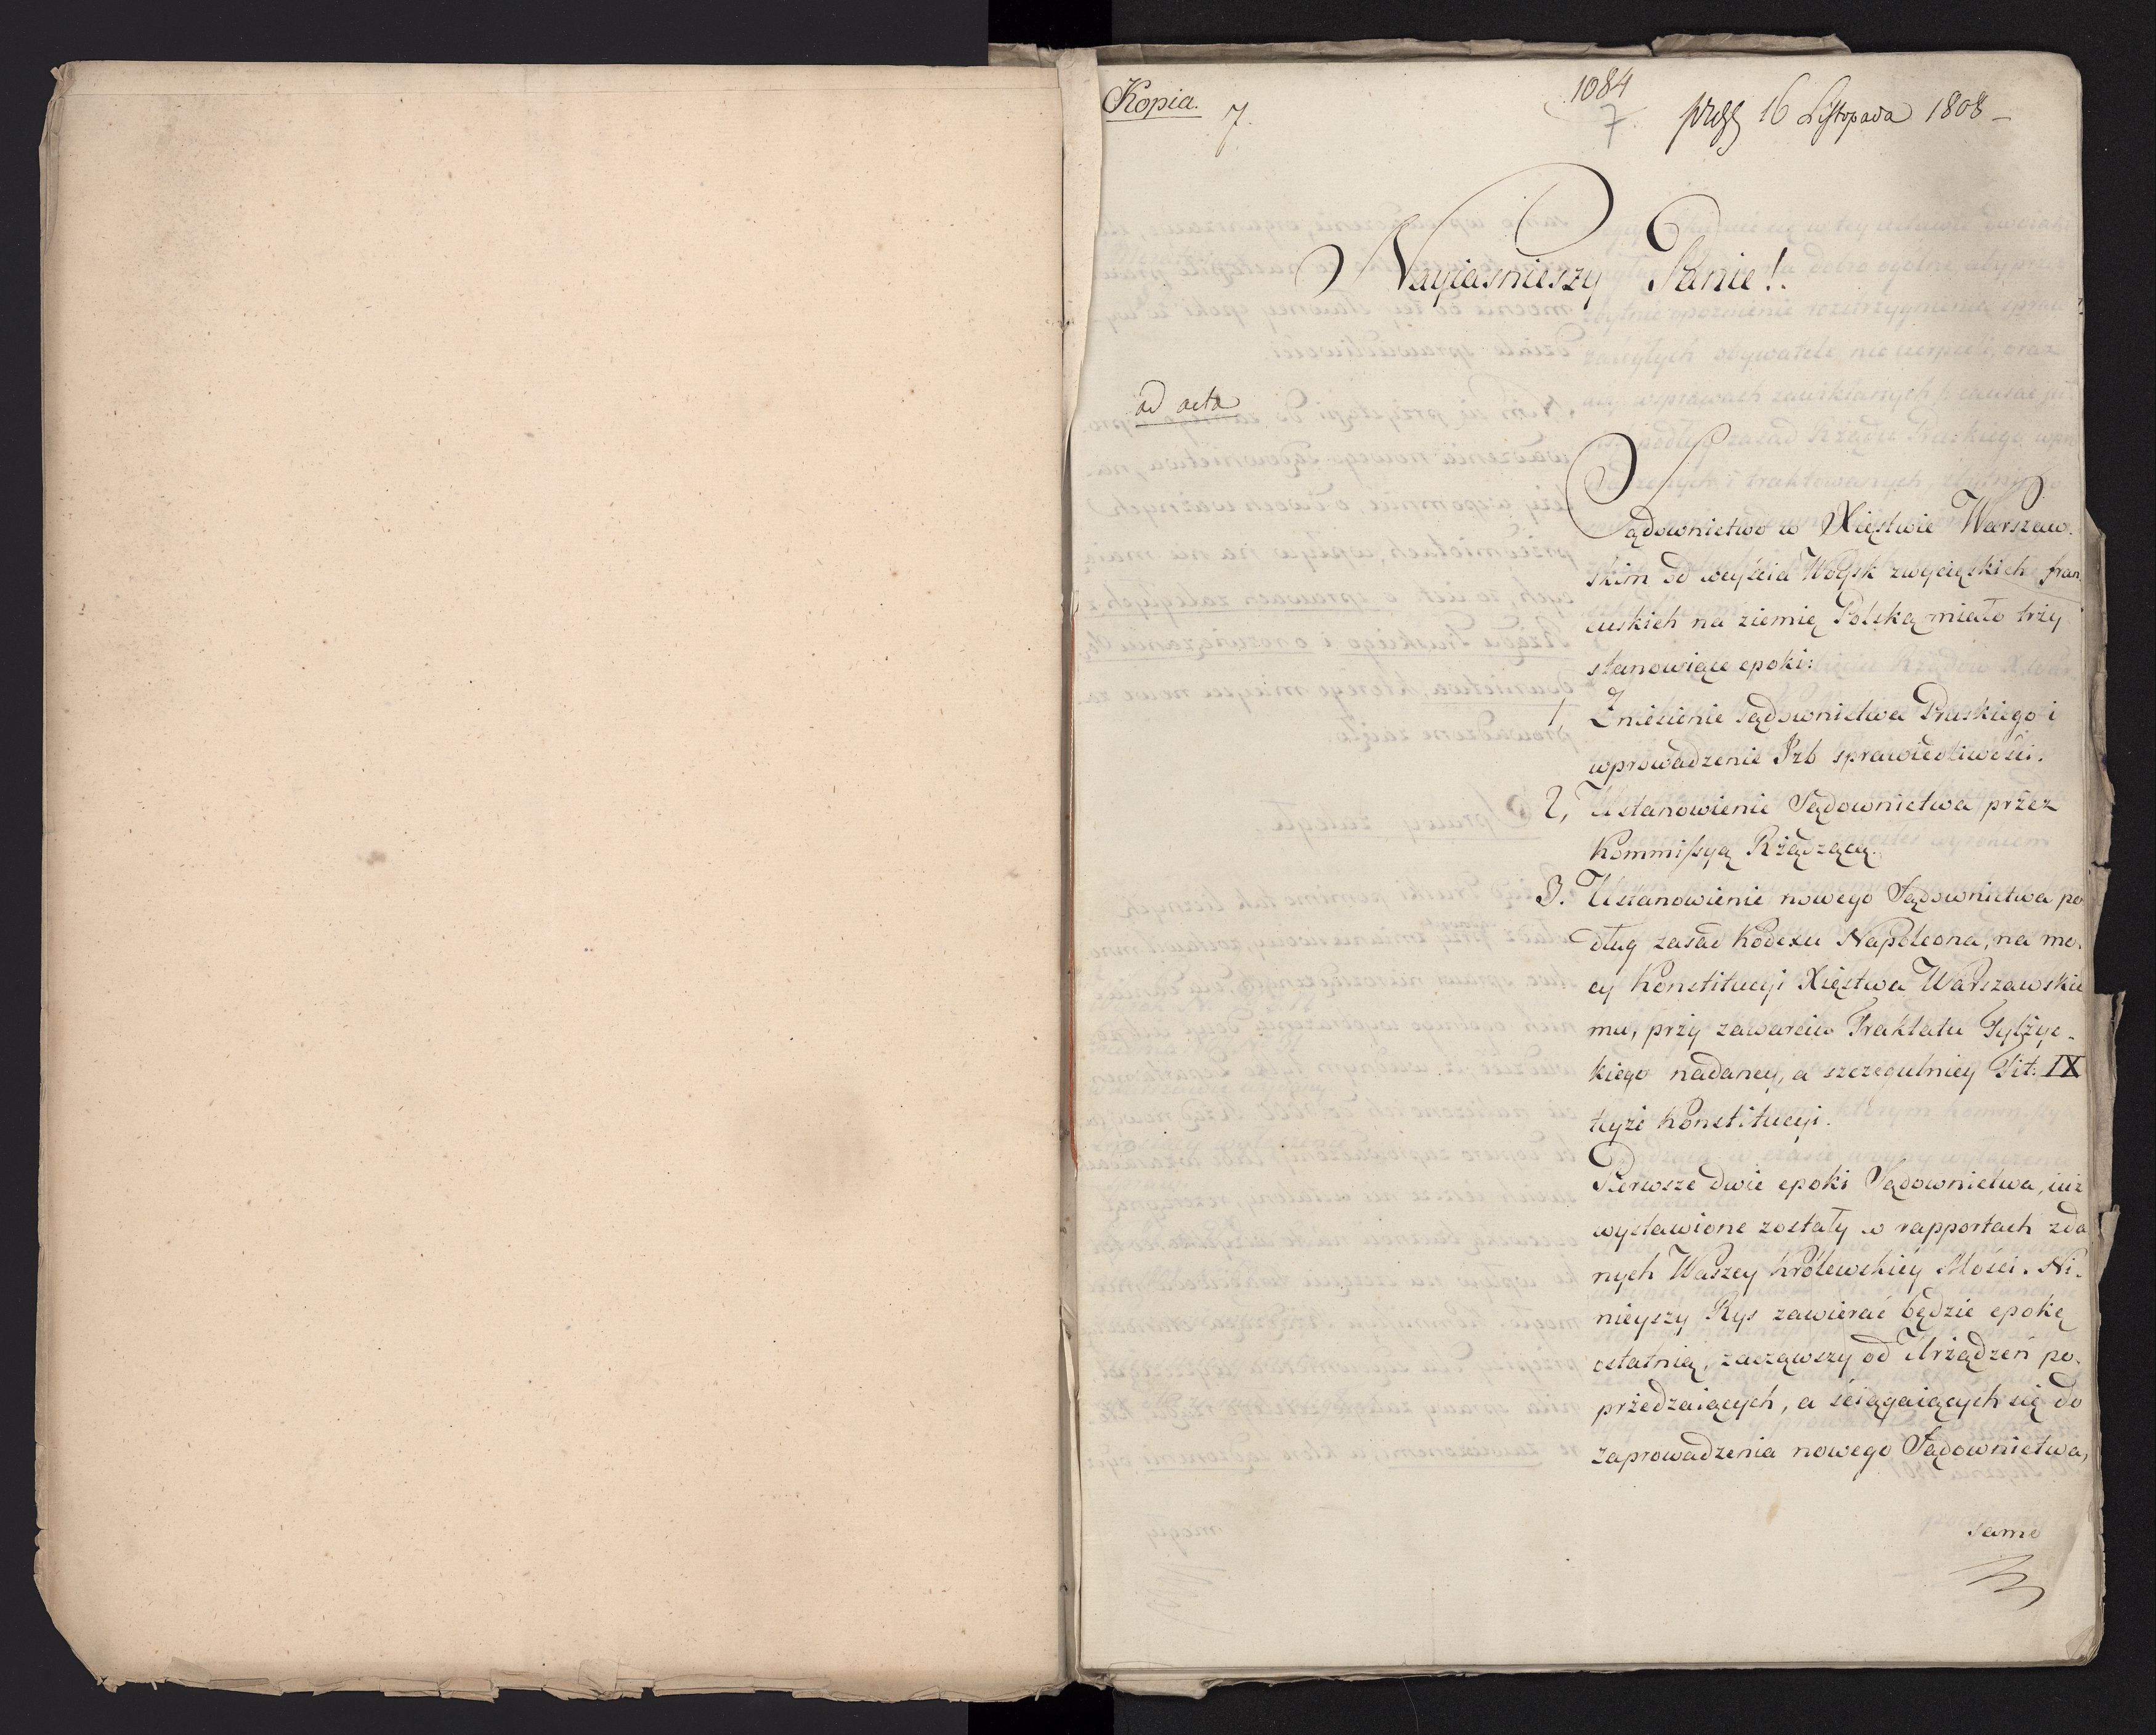 Kopia.
7.
1084
7.
16 Listopada 1808 –
Nayiasnieszy Panie!
ad acta
Sądownictwo w Xięstwie Warszaw-
skim od weyścia Woysk zwycięskich fran
cuskich na ziemię Polską miało trzy
stanowiące epoki:
1, Zniesienie sądownictwa Pruskiego i
wprowadzenie Izb sprawiedliwości.
2, Ustanowienie Sądownictwa przez
Kommissyą Rządzącą.
3. Ustanowienie nowego Sądownictwa po
dług zasad Kodexu Napoleona, na mo-
cy Konstitucyi Xięstwa Warszawskie
mu, przy zawarciu Traktatu Tylżyc-
kiego nadaney, a szczegulniey Tit: IX
teyże Konstitucyi.
Pierwsze dwie epoki Sądownictwa, iuż
wystawione zostały w rapportach zda
nych Waszey Królewskiey Mości. Ni-
nieyszy Rys zawierać będzie epokę
ostatnią, zacząwszy od Urządzeń po-
przedzaiących, a ściągaiących się do
zaprowadzenia nowego Sądownictwa,
samo